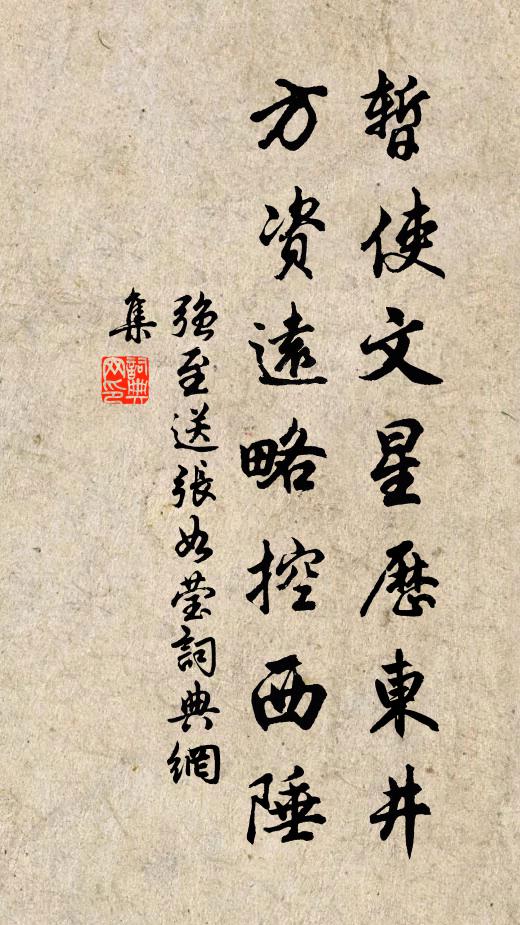 暫使文星歷東井
方資遠略控西陲
強至送張如瑩詞典網
集
詞典
网印